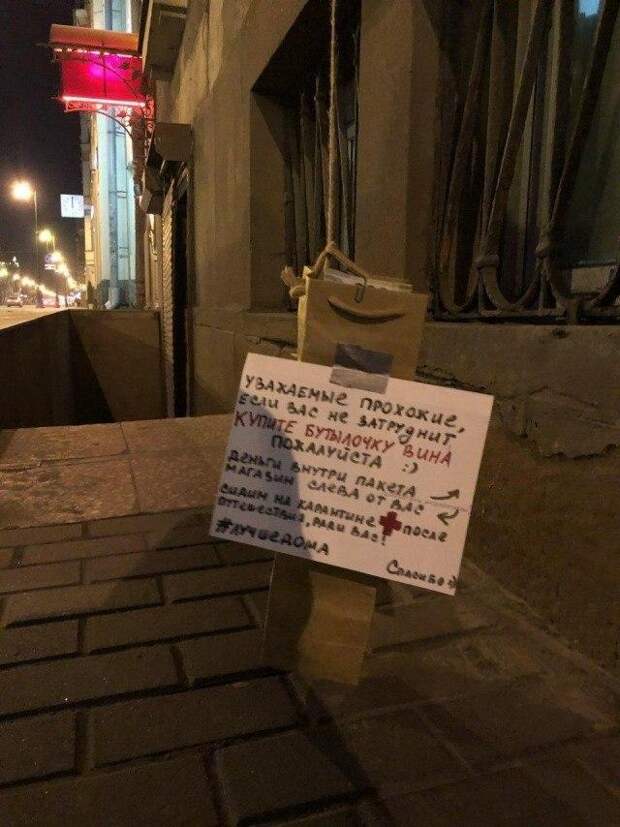 УВАЖАЕМЫЕ ПРОХОЖИЕ,
ЕСЛИ ВАС НЕ ЗАТРУДНИТ
КУПИТЕ БУТЫЛОЧКУ ВИНА
ПОЖАЛУЙСТА :)
ДЕНЬГИ ВНУТРИ ПАКЕТА
МАГАЗИН СЛЕВА ОТ ВАС
СИДИМ НА КАРАНТИНЕ ПОСЛЕ
ПУТЕШЕСТВИЯ, РАДИ ВАС!
#ЛУЧШЕДОМА
Спасибо :)